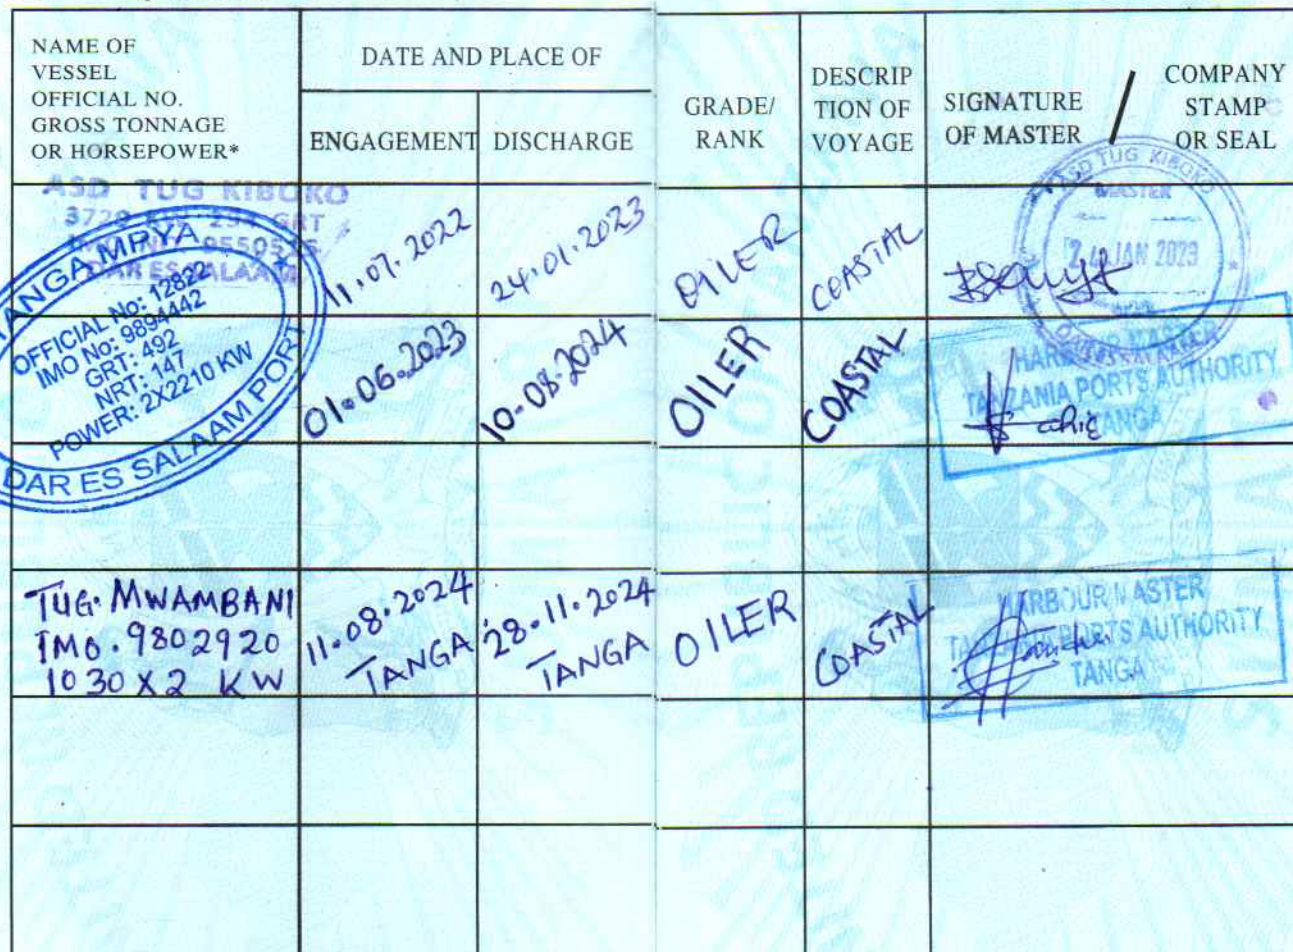 NAME OF
VESSEL
OFFICIAL NO.
GROSS TONNAGE
OR HORSEPOWER*
DATE AND PLACE OF
ENGAGEMENT
DISCHARGE
GRADE/
RANK
DESCRIP
TION OF
VOYAGE
SIGNATURE
OF MASTER
/
COMPANY
STAMP
OR SEAL
ASD TUG KIBOKO
GRT
DAR ES SALAAM
11.07.2022
24.01.2023
OILER
COASTAL
ASD TUG KIBOKO
MASTER
24 JAN 2023
TANGA MPYA
OFFICIAL No: 12822
IMO No: 9894442
GRT: 492
NRT: 147
POWER: 2X2210 KW
DAR ES SALAAM PORT
01.06.2023
10.08.2024
OILER
COASTAL
HARBOUR MASTER
TANZANIA PORTS AUTHORITY
TANGA
TUG. MWAMBANI
IMO. 9802920
1030 X 2 KW
11.08.2024
TANGA
28.11.2024
TANGA
OILER
COASTAL
HARBOUR MASTER
TANZANIA PORTS AUTHORITY
TANGA